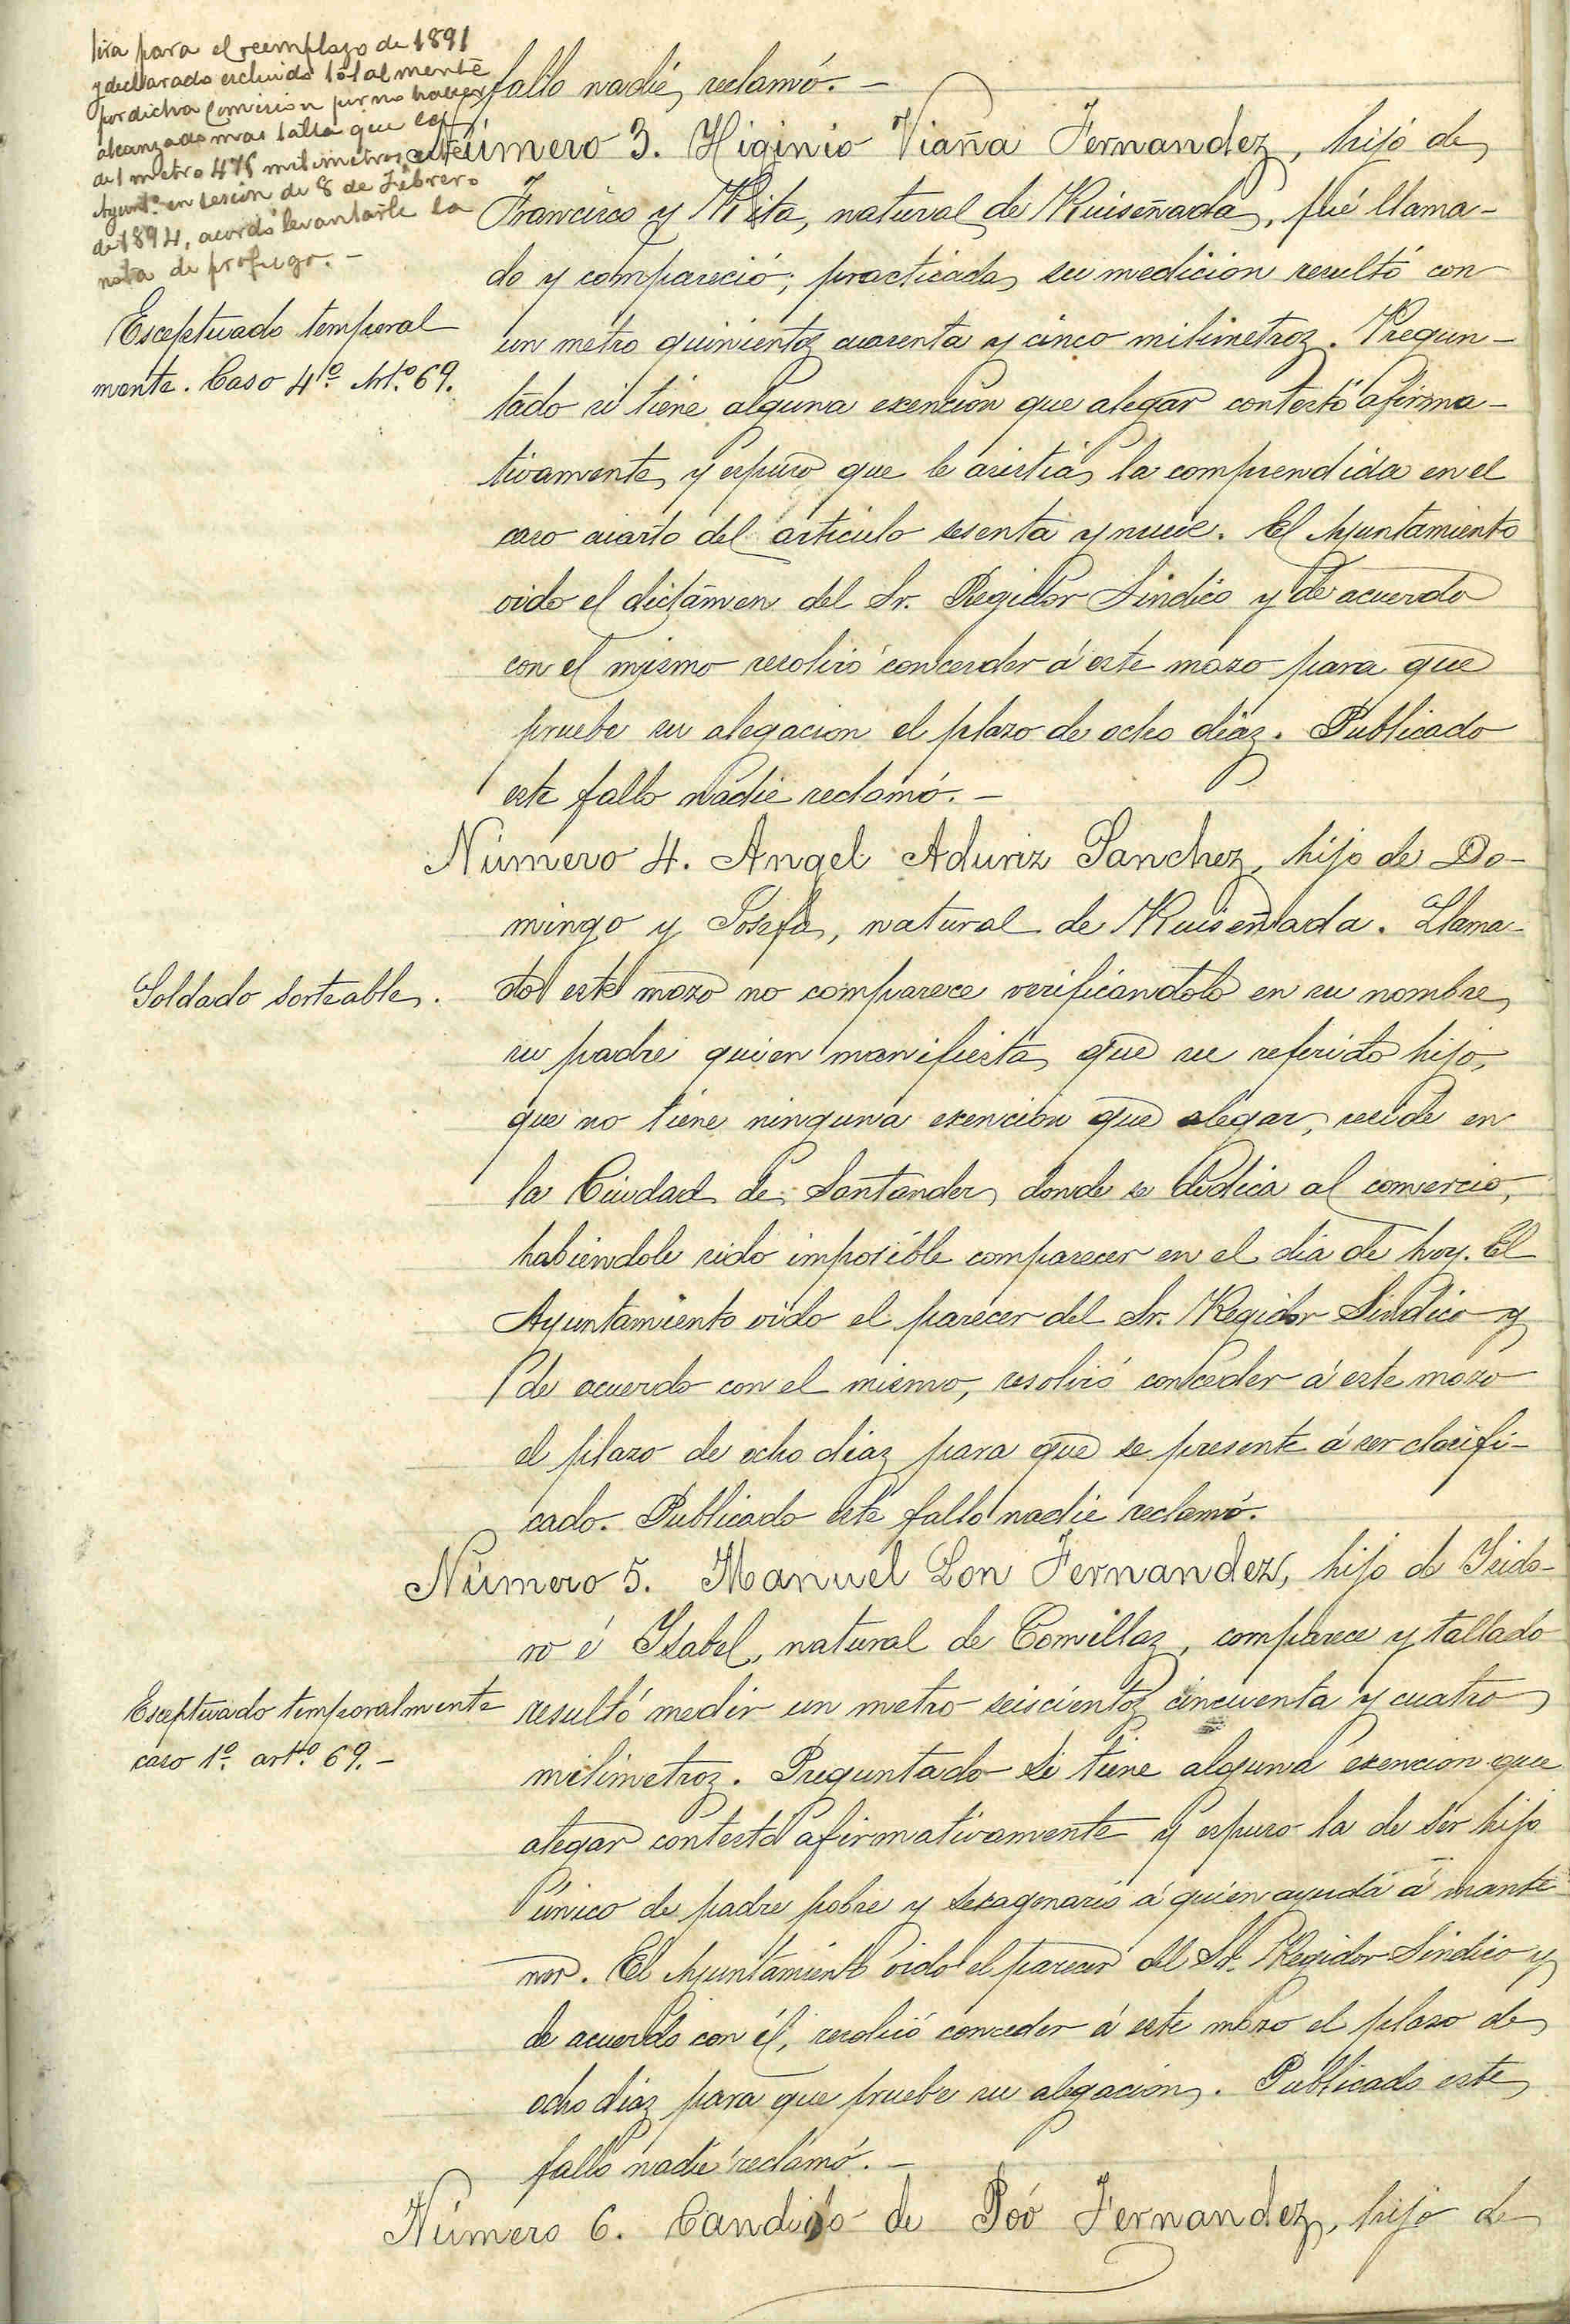 sira para el reemplazo de 1891
y declarado escluido totalmente
por dicha Comision por no haber
alcanzado mas talla que la
de 1 metro 476 milimetros, este
Ayuntº. en sesion de 8 de Febrero
de 1894, acordó levantarle la
nota de profugo. –
fallo nadie reclamó. –
Número 3. Higinio Viaña Fernandez, hijo de
Francisco y Rita, natural de Ruiseñada, fué llama-
do y compareció; practicada su medicion resultó con
un metro quinientos cuarenta y cinco milimetros. Pregun-
Esceptuado temporal
mente. Caso 4º. Artº. 69.
tado si tiene alguna exencion que alegar contestó afirma-
tivamente y espuso que le asistia la comprendida en el
caso cuarto del articulo sesenta y nueve. El Ayuntamiento
oido el dictámen del Sr. Regidor Sindico y de acuerdo
con el mismo resolvió conceder á este mozo para que
pruebe su alegacion el plazo de ocho dias. Publicado
este fallo nadie reclamó. –
Número 4. Angel Aduriz Sanchez, hijo de Do-
mingo y Josefa, natural de Ruiseñada. Llama-
Soldado sorteable.
do este mozo no comparece verificandolo en su nombre
su padre quien manifiesta que su referido hijo,
que no tiene ninguna exencion que alegar, reside en
la Ciudad de Santander donde se dedica al comercio,
habiendole sido imposible comparecer en el dia de hoy. El
Ayuntamiento oido el parecer del Sr. Regidor Sindico y
de acuerdo con el mismo, resolvió conceder á este mozo
el plazo de ocho dias para que se presente á ser clasifi-
cado. Publicado este fallo nadie reclamó.
Número 5. Manuel Lon Fernandez, hijo de Isido-
ro é Isabel, natural de Comillas, comparece y tallado
Esceptuado temporalmente
caso 1º. artº. 69. –
resultó medir un metro seiscientos cincuenta y cuatro
milimetros. Preguntado si tiene alguna exencion que
alegar contestó afirmativamente y espuso la de ser hijo
único de padre pobre y sexagenario á quien ayuda á mante-
ner. El Ayuntamiento oido el parecer del Sr. Regidor Sindico y
de acuerdo con él, resolvió conceder á este mozo el plazo de
ocho dias para que pruebe su alegacion. Publicado este
fallo nadie reclamó. –
Número 6. Candido de Poó Fernandez, hijo de